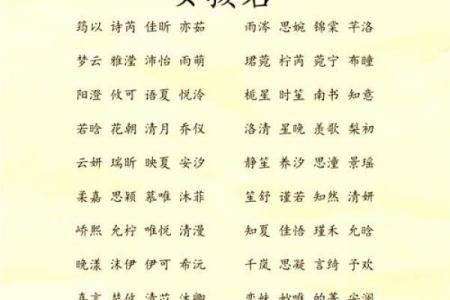 女孩名
筠以 诗芮 佳昕 亦茹 雨涔 思婉 锦棠 芊洛
梦云 雅滢 沛怡 雨萌 珺菀 柠芮 菀宁 布瞳
阳澄 攸可 语夏 悦泠 栀星 时笙 南书 知意
若晗 花朝 清月 乔仪 洛清 星晚 羡歌 梨初
云妍 瑞昕 映夏 安汐 静笙 养汐 思潼 景瑶
柔嘉 思颖 慕唯 沐菲 笙舒 谨若 知然 清妍
峤熙 允柠 唯悦 清漫 知夏 佳悟 瑾禾 允晗
晚漾 沫伊 伊可 希沅 千岚 思凝 言绮 予欢